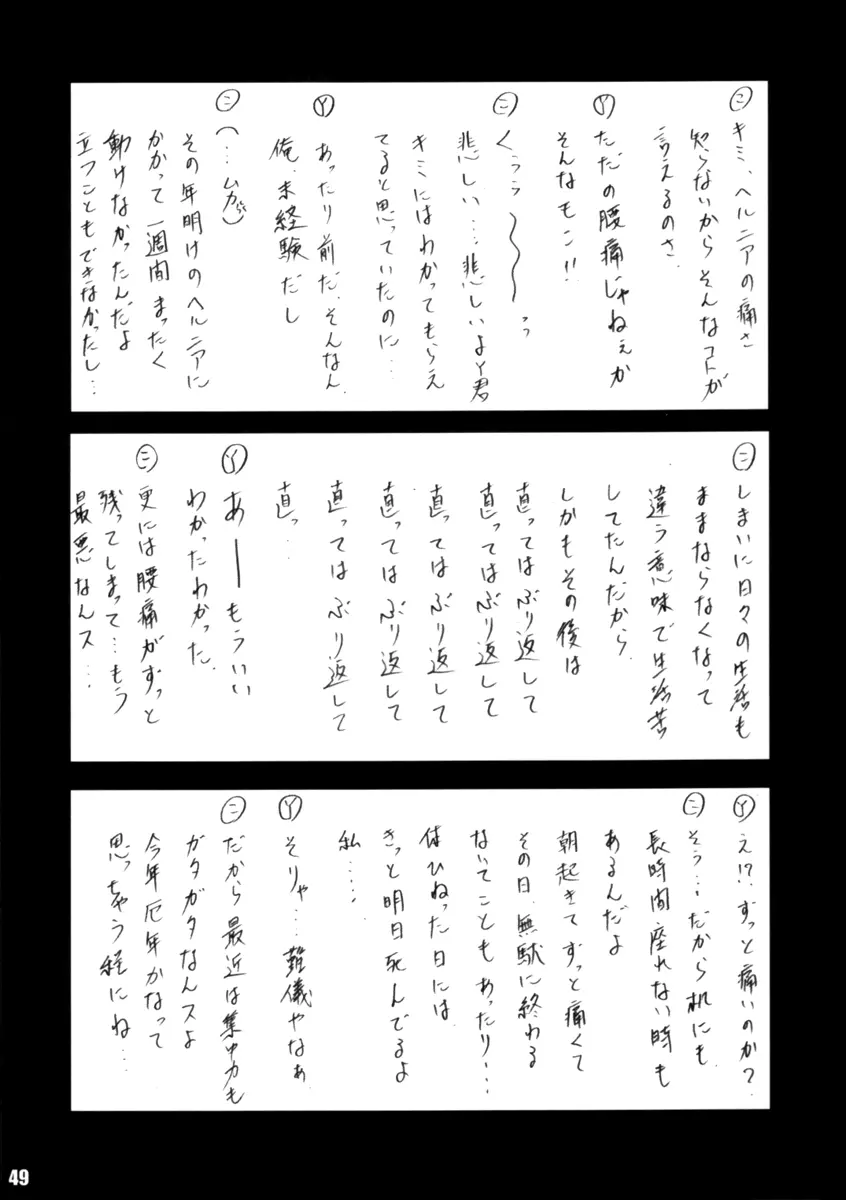 ㊁キミ、ヘルニアの痛さ
知らないからそんなコトが
言えるのさ
Ⓨただの腰痛じゃねぇか
そんなもン!!
㊁くぅぅ〜〜〜っ
悲しい…悲しいよY君
キミにはわかってもらえ
てると思っていたのに…
Ⓨあったり前だ、そんなん、
俺、未経験だし
㊁(へ…ムカ)
その年明けのヘルニアに
かかって一週間まったく
動けなかったんだよ
立つこともできなかったし…
㊁しまいに日々の生活も
ままならなくなって
違う意味で生活苦
してたんだから
しかもその後は
直ってはぶり返して
直ってはぶり返して
直ってはぶり返して
直ってはぶり返して
直ってはぶり返して
直っ…
Ⓨあーもういい
わかったわかった
㊁更には腰痛がずっと
残ってしまって…もう
最悪なんス…
Ⓨえ!?ずっと痛いのか?
㊁そう…だから机にも
長時間座れない時も
あるんだよ
朝起きてずっと痛くて
その日、無駄に終わる
ないてこともあったり…
体ひねった日には
きっと明日死んでるよ
私……
Ⓨそりゃ…難儀やなぁ
㊁だから最近は集中力も
ガタガタなんスよ
今年厄年かなって
思っちゃう程にね…
49